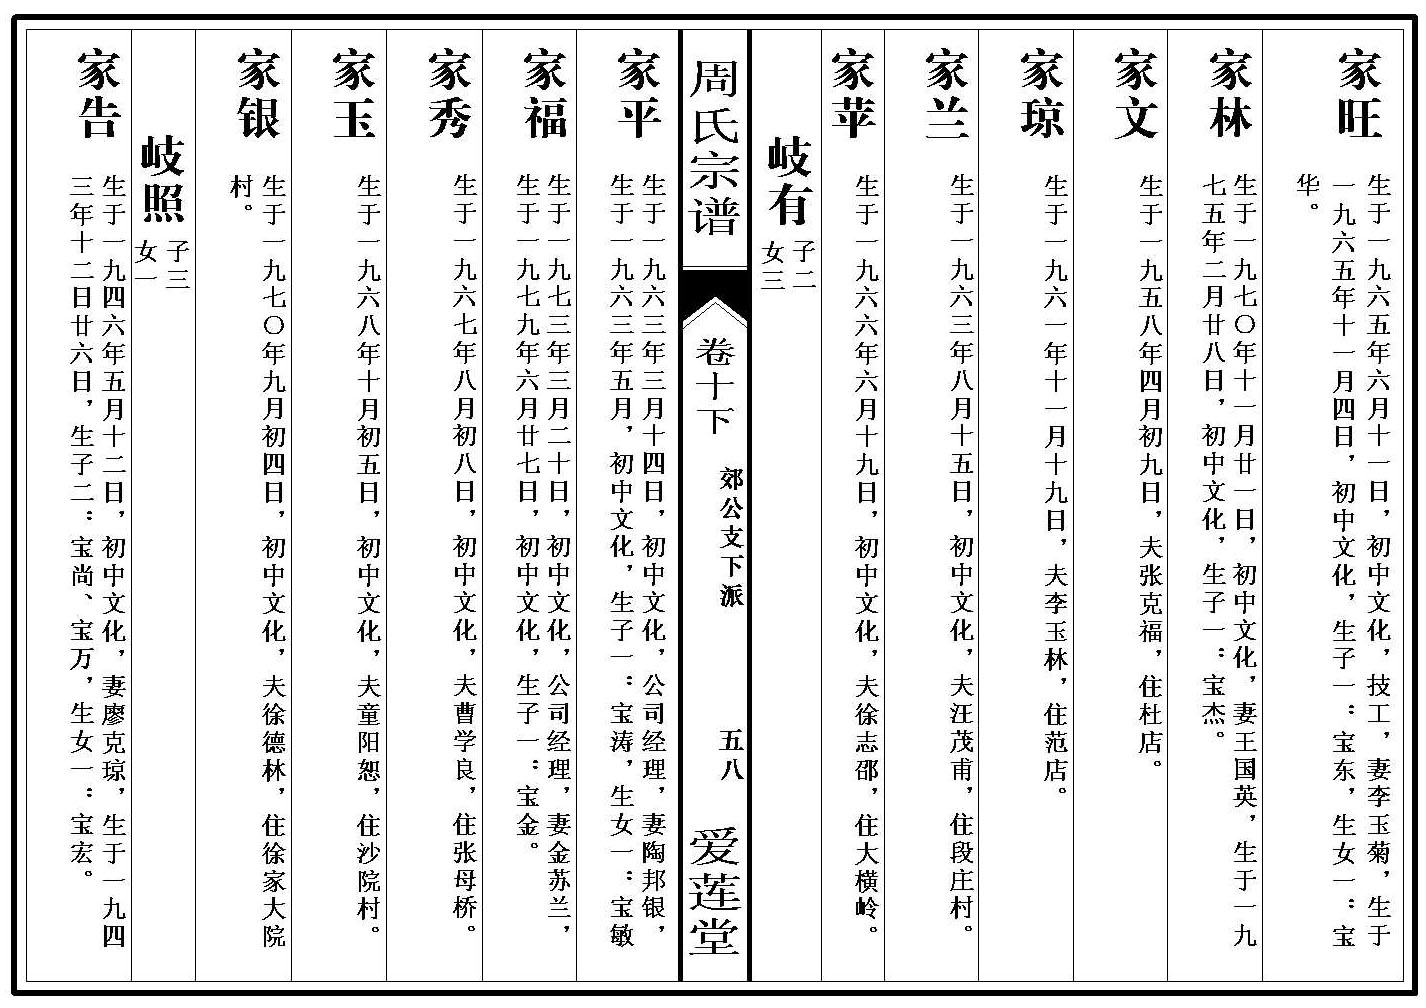 家旺
生于一九六五年六月十一日，初中文化，技工，妻李玉菊，生于
一九六五年十一月四日，初中文化，生子一：宝东，生女一：宝
华。
家林
生于一九七〇年十一月廿一日，初中文化，妻王国英，生于一九
七五年二月廿八日，初中文化，生子一：宝杰。
家文
生于一九五八年四月初九日，夫张克福，住杜店。
家琼
生于一九六一年十一月十九日，夫李玉林，住范店。
家兰
生于一九六三年八月十五日，初中文化，夫汪茂甫，住段庄村。
家苹
生于一九六六年六月十九日，初中文化，夫徐志邵，住大横岭。
岐有
子二
女三
周氏宗谱
卷十下
郊公支下派
五八
爱莲堂
家平
生于一九六三年三月十四日，初中文化，公司经理，妻陶邦银，
生于一九六三年五月，初中文化，生子一：宝涛，生女一：宝敏
家福
生于一九七三年三月二十日，初中文化，公司经理，妻金苏兰，
生于一九七九年六月廿七日，初中文化，生子一：宝金。
家秀
生于一九六七年八月初八日，初中文化，夫曹学良，住张母桥。
家玉
生于一九六八年十月初五日，初中文化，夫童阳恕，住沙院村。
家银
生于一九七〇年九月初四日，初中文化，夫徐德林，住徐家大院
村。
岐照
子三
女一
家告
生于一九四六年五月十二日，初中文化，妻廖克琼，生于一九四
三年十二日廿六日，生子二：宝尚、宝万，生女一：宝宏。